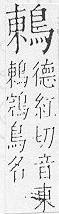 鶇
德紅切音東
鶇鵍鳥名